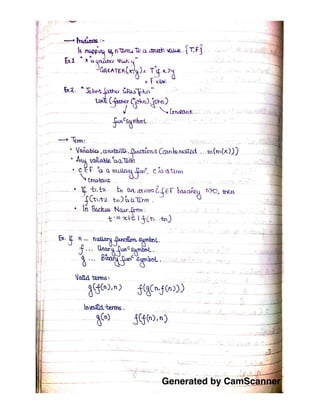 → Predicate :-
Is mapping of n terms to a truth value {T,F}
Ex.1 "x is greater than y"
GREATER(x,y) = T if x>y
= F else.
Ex.2. "John's father likes John"
Like (father (john), john)
→ constant
function symbol
→ Term:
• Variables, constants, functions (can be nested ... m(m(x)))
• Any variable is a term
• c ∈ F is a nullary func, c is a term
→ constant
• If t1, t2 ... tn are terms & f ∈ F has arity n>0, then
f(t1, t2 ... tn) is a term.
• In Backus Naur form:
t ::= x | c | f(t...tn)
Ex. If n ... nullary function symbol.
f ... Unary func symbol.
g ... Binary func symbol.
Valid terms:
g(f(n), n) f(g(n, f(n)))
Invalid terms.
g(n) f(f(n), n)
Generated by CamScanner